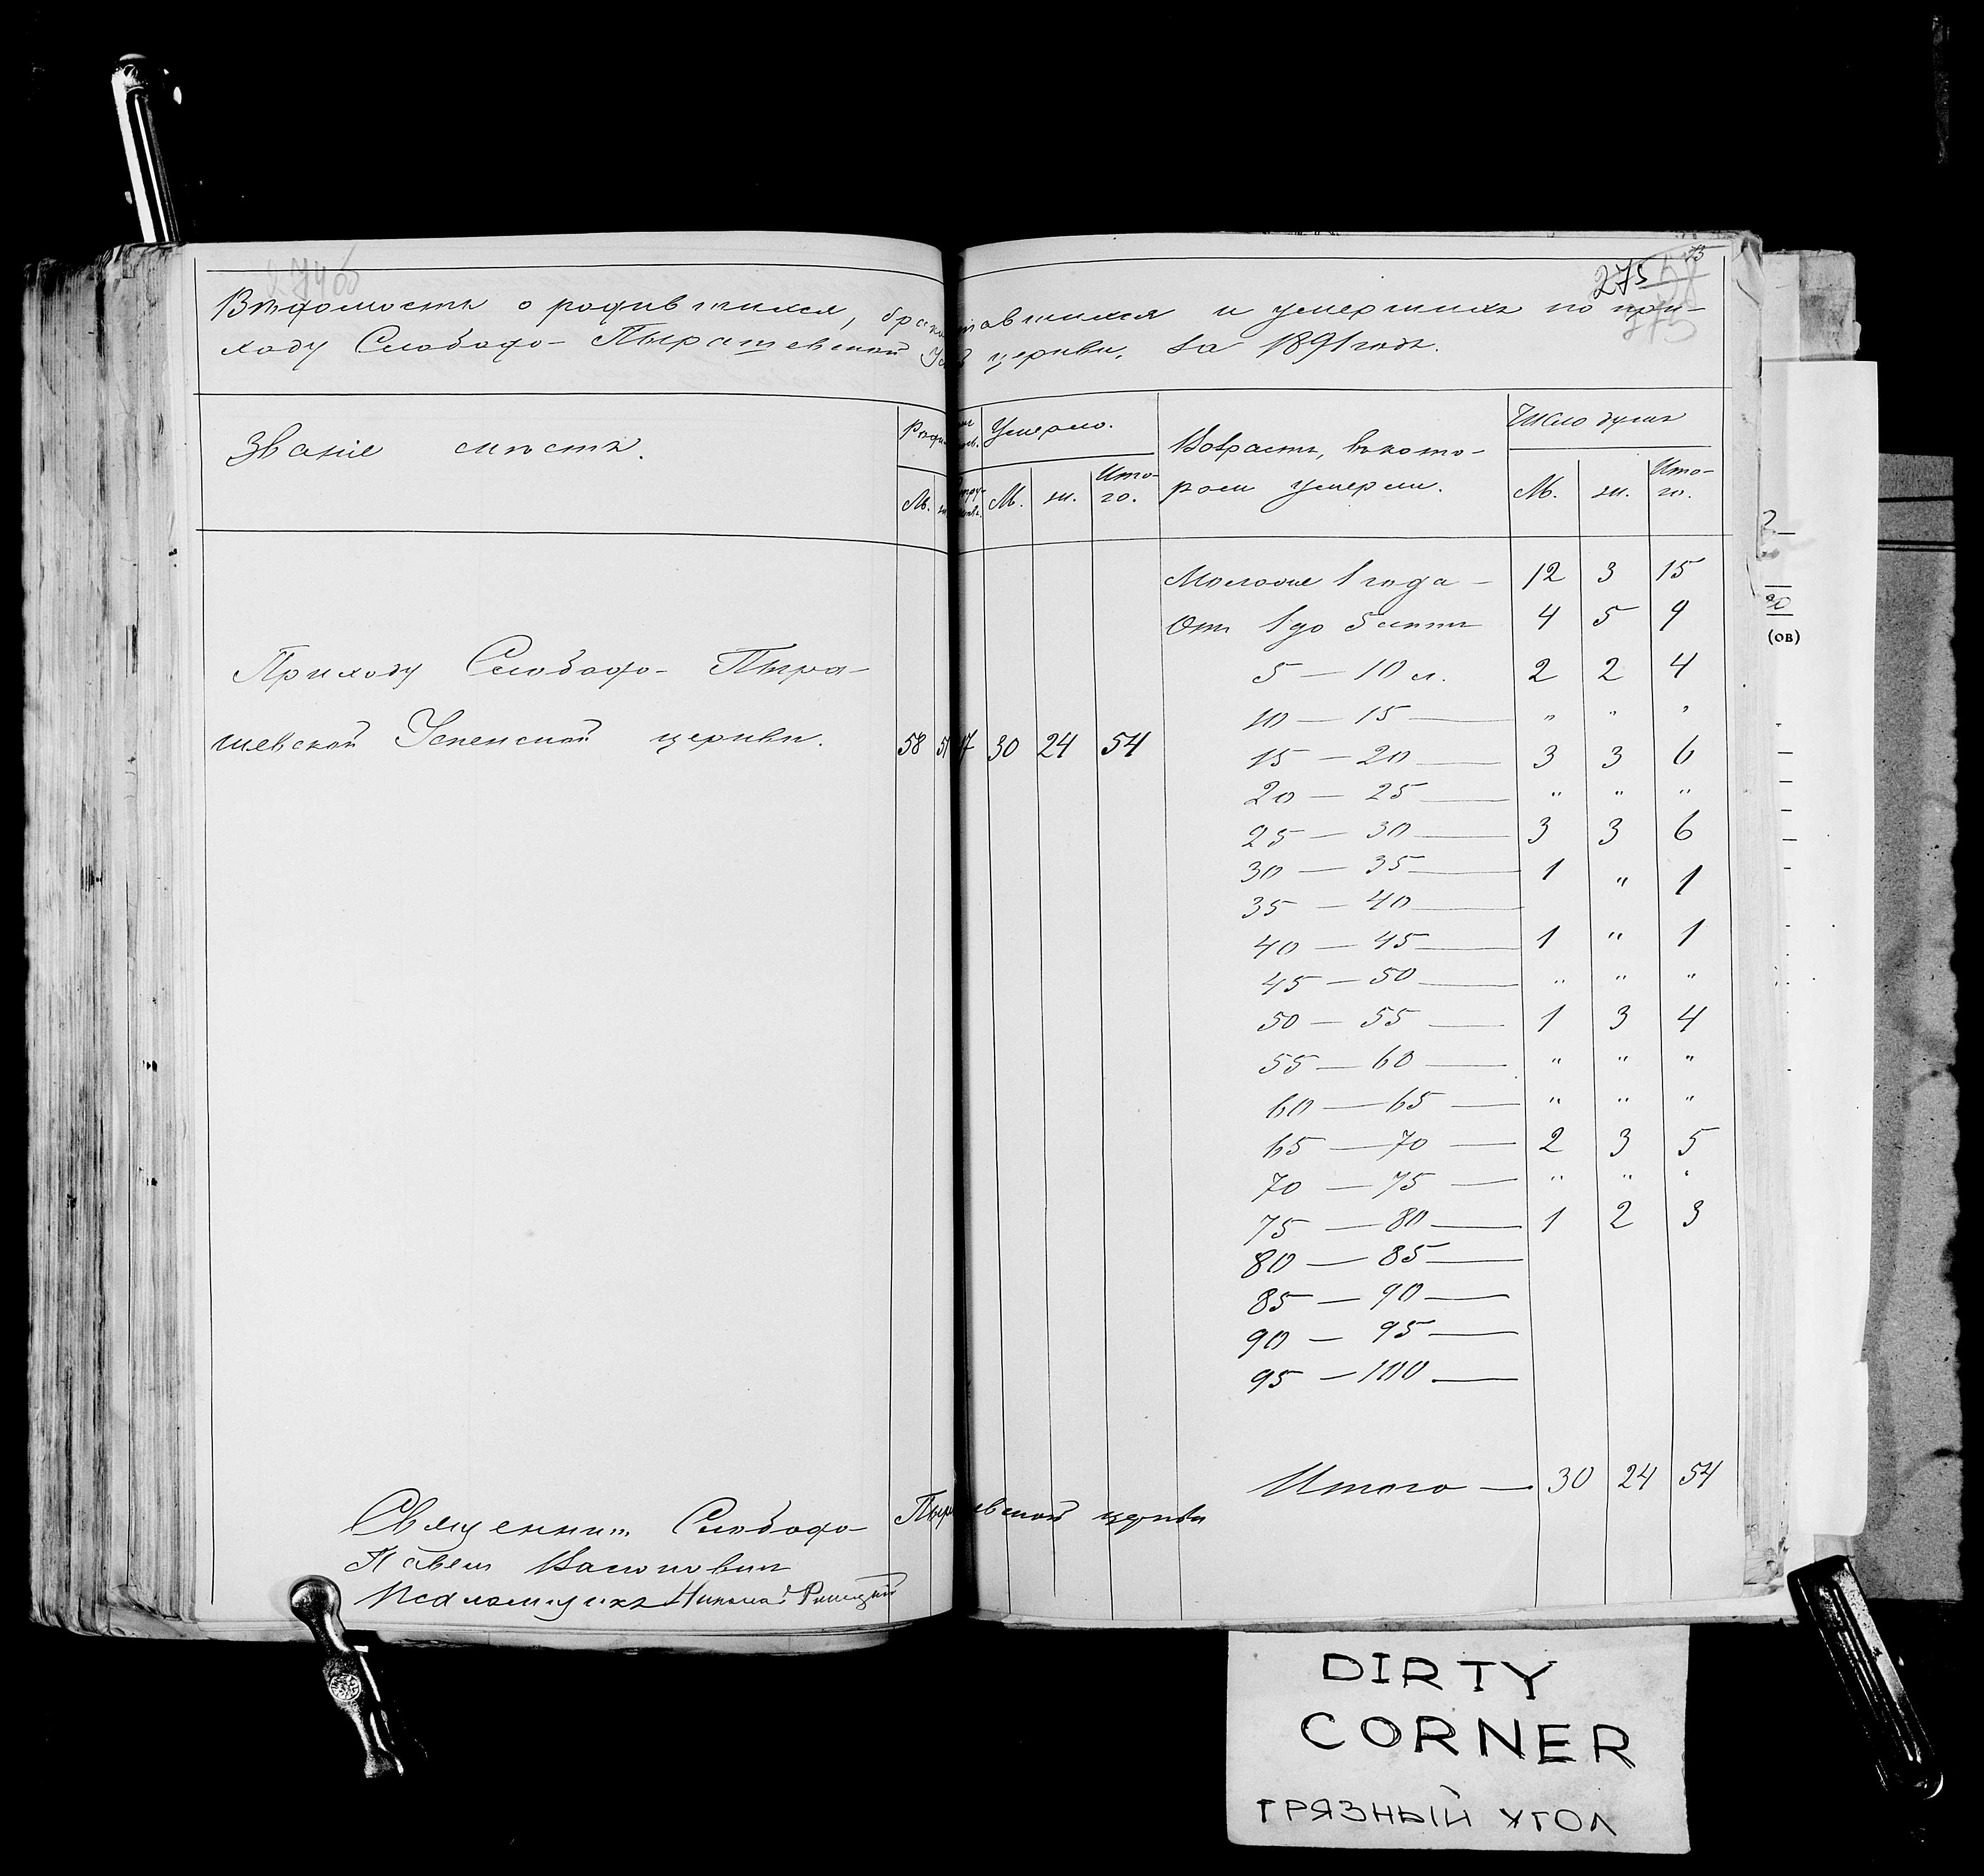 275
Вѣдомость о родившихся, бракосочетавшихся и умершихъ по при-
ходу Слободо-Пырашевской Усп. церкви, за 1891 годъ.
Званіе мѣстъ.
Умерло.
М. ж. Ито-
го.
Возрастъ, въ кото-
ромъ умерли.
Число душъ
М. ж. Ито-
го.
Моложе 1 года — 12 3 15
Отъ 1 до 5 лѣтъ 4 5 9
5 — 10 л. 2 2 4
10 — 15 — " " "
15 — 20 — 3 3 6
20 — 25 — " " "
25 — 30 — 3 3 6
30 — 35 — 1 " 1
35 — 40 —
40 — 45 — 1 " 1
45 — 50 — " " "
50 — 55 — 1 3 4
55 — 60 — " " "
60 — 65 — " " "
65 — 70 — 2 3 5
70 — 75 — " " "
75 — 80 — 1 2 3
80 — 85 —
85 — 90 —
90 — 95 —
95 — 100 —
Итого — 30 24 54
Приходу Слободо-Пыра-
шевской Успенской церкви. 58 51 17 30 24 54
Священникъ Слободо-Пырашевской церкви
Павелъ
Псаломщикъ Николай
(ов)
DIRTY
CORNER
ГРЯЗНЫЙ УГОЛ